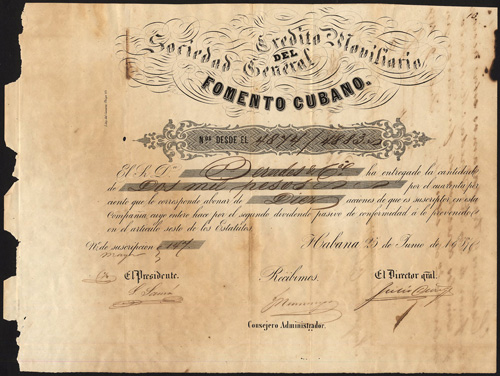 Sociedad Credito Moviliario
DEL
General
FOMENTO CUBANO.
Nos. DESDE EL 4874/4883
El S. D. ha entregado la cantidad
de Dos mil pesos por el cuarenta por
ciento que le corresponde abonar de Diez acciones de que es suscriptor en esta
Compañia, cuyo entero hace por el segundo dividendo pasivo de conformidad á lo prevenido
en el articulo sesto de los Estatutos.
No. de suscripcion 107
Habana 25 de Junio de
El Presidente.
Recibimos.
El Director gral.
Consejero Administrador.